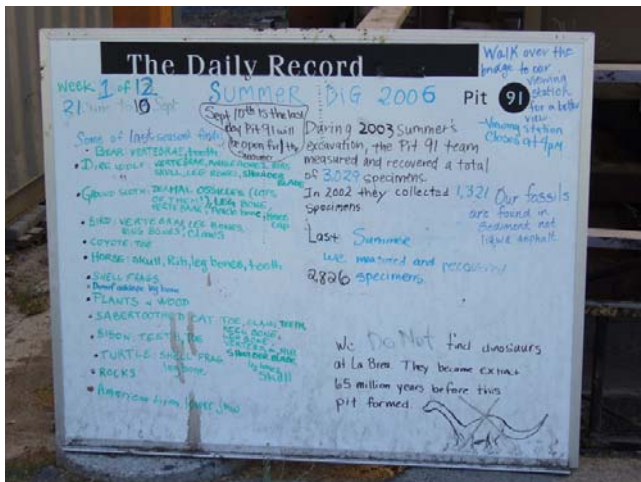 The Daily Record
Week 1 of 12
21 June to 10 Sept
SUMMER DIG 2006
Pit 91
Walk over the
bridge to our
viewing
station
for a better
view
Viewing station
closes at 4pm
Sept 10th is the last
day Pit 91 will
be open for the
summer
Some of last season's finds:
• BEAR: VERTEBRAE, teeth
• DIRE WOLF: VERTEBRAE,
SKULL, LEG BONES, SHOULDER
BLADE
• GROUND SLOTH: DERMAL OSSICLES (LOTS
OF THEM!), LEG BONE,
VERTEBRAE,
• BIRD: VERTEBRA, LEG BONES,
WING BONES, CLAWS
• COYOTE: TOE
• HORSE: Skull, Rib, leg bones, tooth
• SHELL FRAGS
• PLANTS & WOOD
• SABERTOOTHED CAT: TOE, CLAW, TEETH,
• BISON: TEETH, TOE
VERTEBRA, RIB
SHOULDER BLADE
• TURTLE: SHELL FRAG
leg bone
Skull
• ROCKS
• American Lion lower jaw
During 2003 Summer's
excavation, the Pit 91 team
measured and recovered a total
of 3,029 specimens.
In 2002 they collected 1,321
specimens
Last Summer
we measured and recovered
2,826 specimens.
Our fossils
are found in
sediment not
liquid asphalt.
We Do Not find dinosaurs
at La Brea. They became extinct
65 million years before this
pit formed.